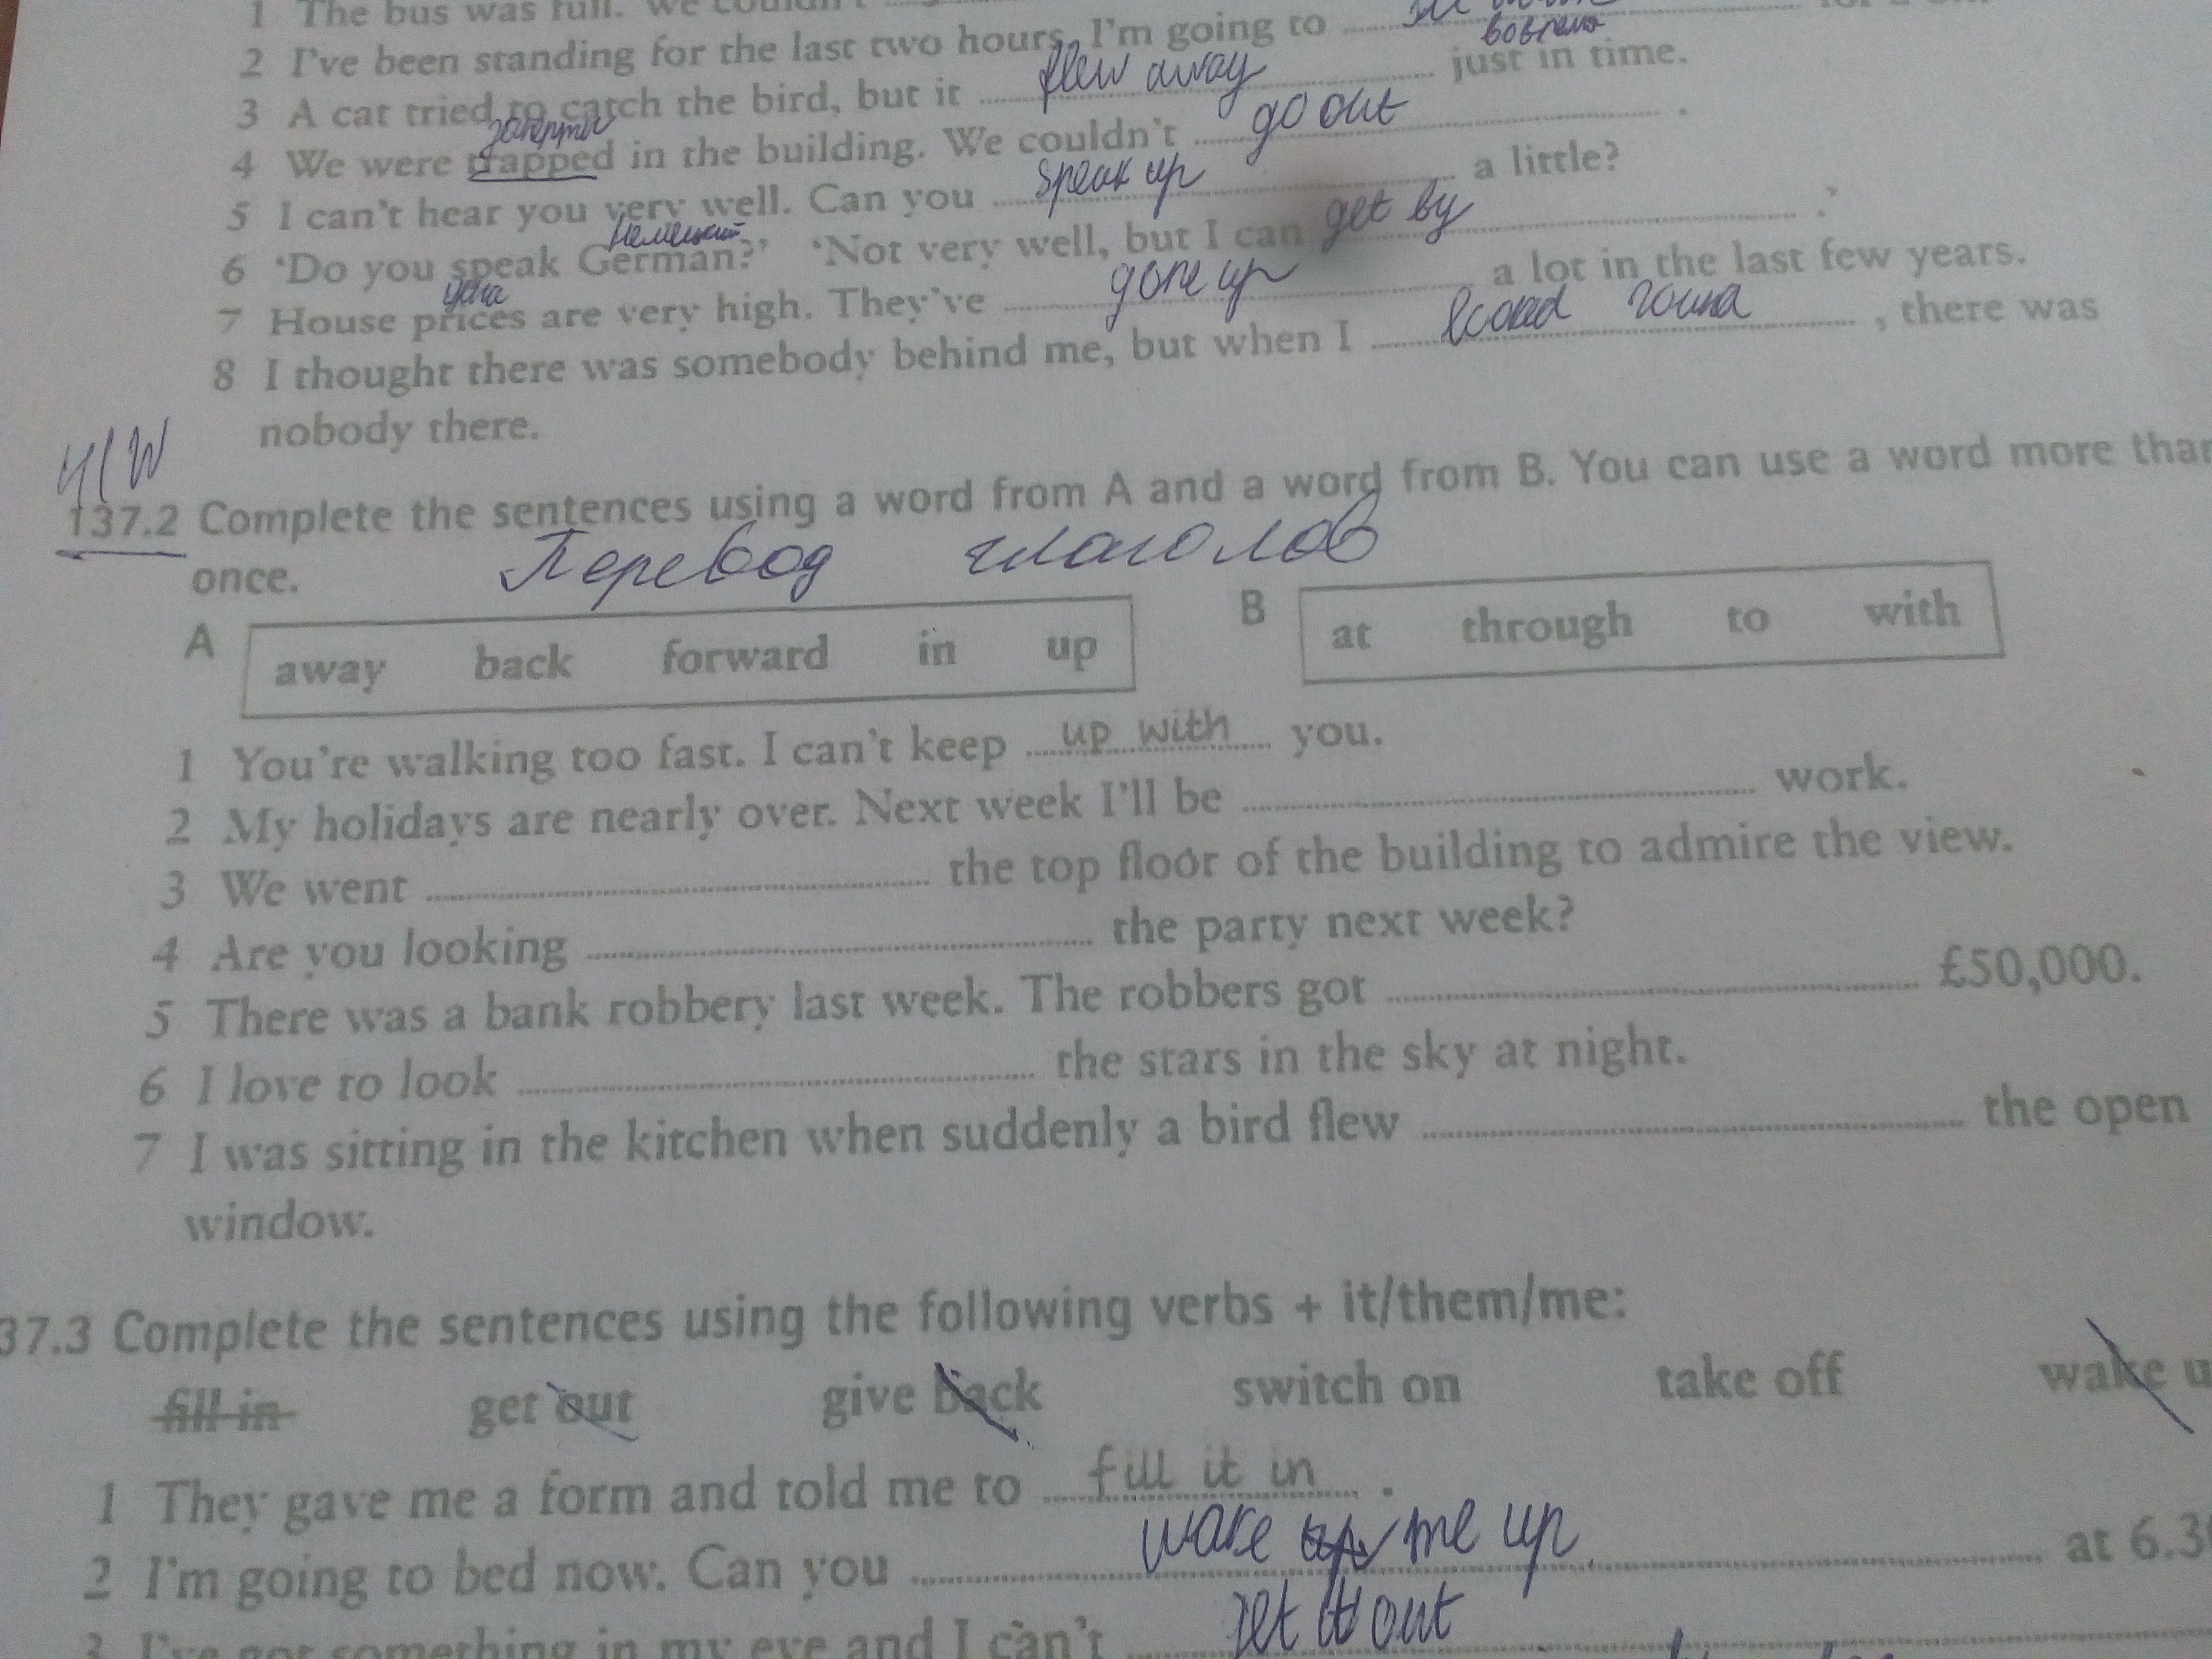 1 The bus was full. We couldn't
2 I've been standing for the last two hours. I'm going to ........
вовремя
3 A cat tried to catch the bird, but it ........ flew away ........ just in time.
заперты
4 We were trapped in the building. We couldn't ........ go out ........ .
5 I can't hear you very well. Can you ........ speak up ........ a little?
немецкий
6 ‘Do you speak German?’ ‘Not very well, but I can get by ........ .’
цена
7 House prices are very high. They've ........ gone up ........ a lot in the last few years.
8 I thought there was somebody behind me, but when I ........ ........ , there was
nobody there.
H/W
137.2 Complete the sentences using a word from A and a word from B. You can use a word more than
once.
Перевод глаголов
A away back forward in up B at through to with
1 You're walking too fast. I can't keep ... up with ... you.
2 My holidays are nearly over. Next week I'll be ........ work.
3 We went ........ the top floor of the building to admire the view.
4 Are you looking ........ the party next week?
5 There was a bank robbery last week. The robbers got ........ £50,000.
6 I love to look ........ the stars in the sky at night.
7 I was sitting in the kitchen when suddenly a bird flew ........ the open
window.
37.3 Complete the sentences using the following verbs + it/them/me:
fill in get out give back switch on take off wake u
1 They gave me a form and told me to ... fill it in ... .
2 I'm going to bed now. Can you ........ wake me up ........ at 6.3
3 I've got something in my eye and I can't ........ get it out